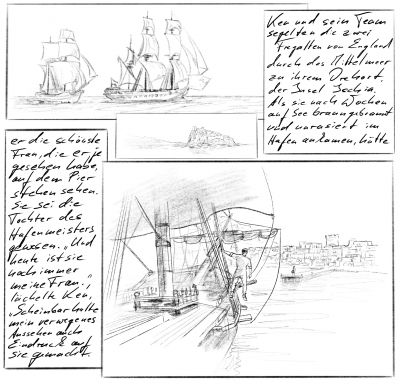 Ken und sein Team
segelten die zwei
Fregatten von England
durch das Mittelmeer
zu ihrem Drehort,
der Insel Ischia.
Als sie nach Wochen
auf See braungebrannt
und unrasiert im
Hafen ankamen, hätte
er die schönste
Frau, die er je
gesehen habe,
auf dem Pier
stehen sehen.
Sie sei die
Tochter des
Hafenmeisters
gewesen. „Und
heute ist sie
noch immer
meine Frau.",
lächelte Ken,
„Scheinbar hatte
mein verwegenes
Aussehen auch
Eindruck auf
sie gemacht.